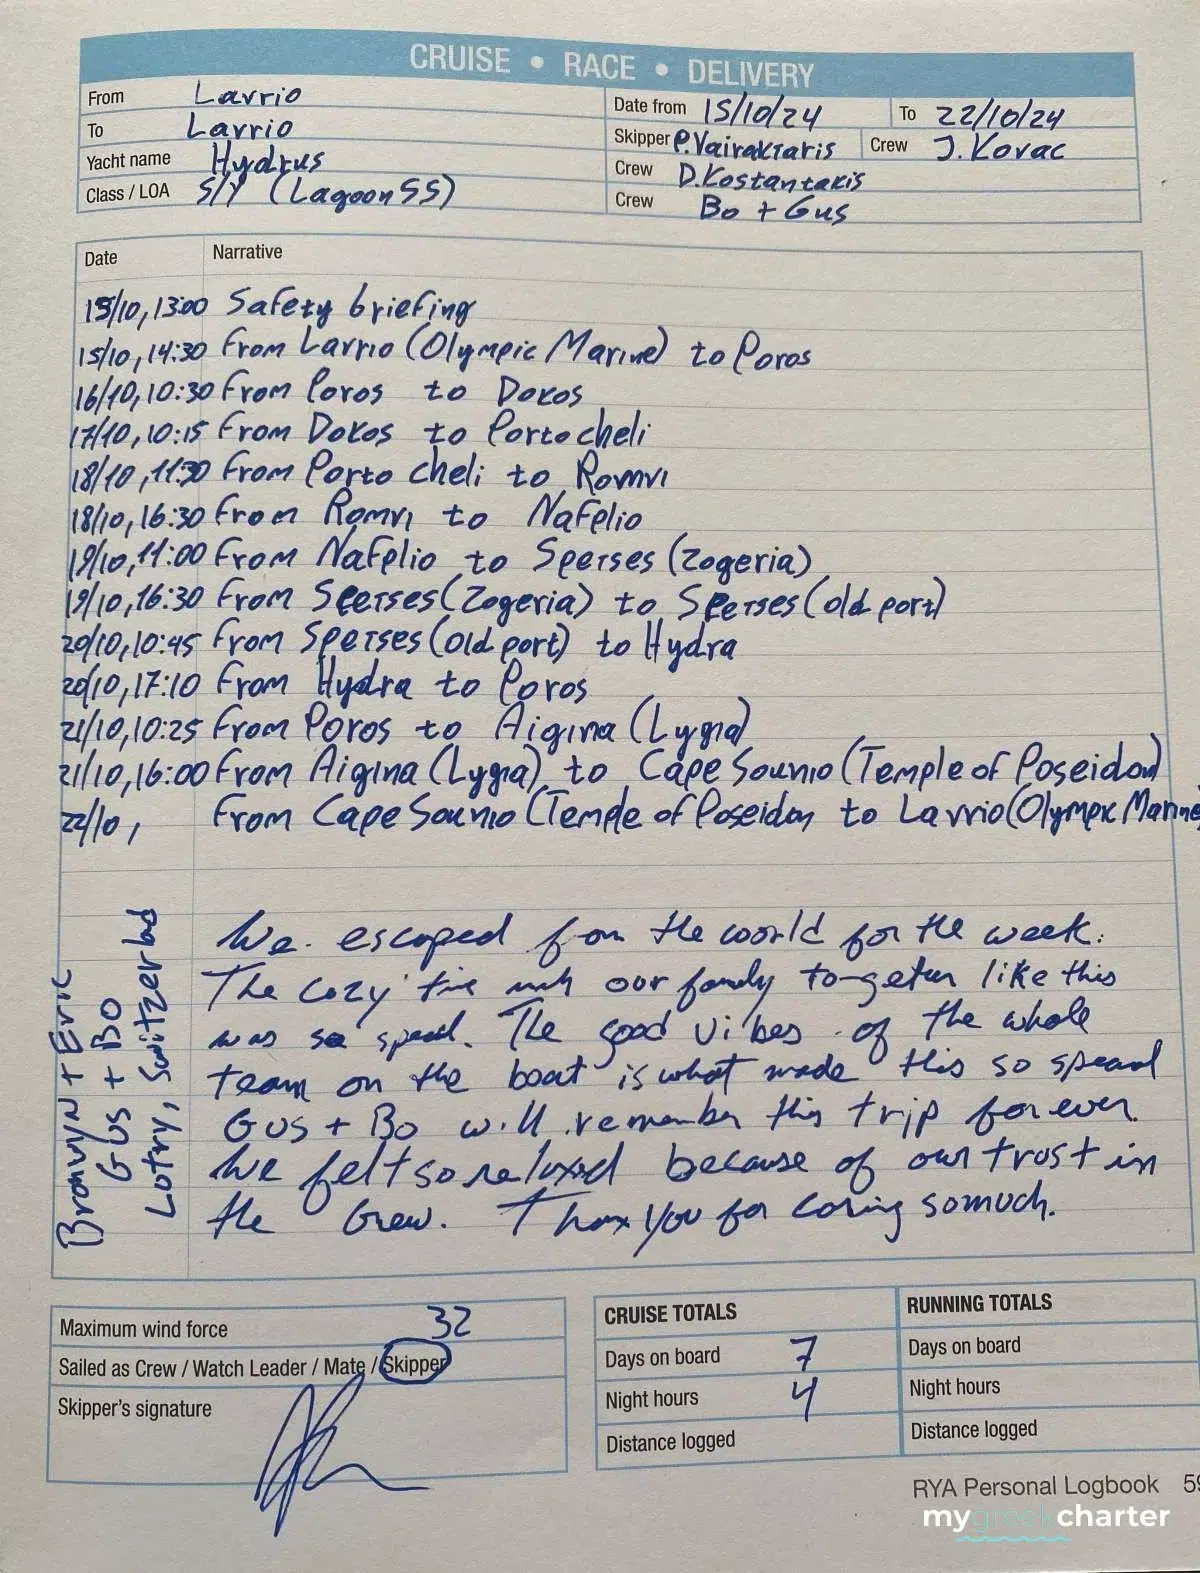 CRUISE • RACE • DELIVERY
From Lavrio
Date from 15/10/24 To 22/10/24
To Lavrio
Skipper P.Vairaktaris Crew J.Kovac
Yacht name Hydrus
Crew D.Kostantakis
Class / LOA S/Y (Lagoon 55)
Crew Bo + Gus
Date Narrative
15/10, 13:00 Safety briefing
15/10, 14:30 From Lavrio (Olympic Marine) to Poros
16/10, 10:30 From Poros to Dokos
17/10, 10:15 From Dokos to Portocheli
18/10, 11:30 From Porto cheli to Romvi
18/10, 16:30 From Romvi to Nafplio
19/10, 11:00 From Nafplio to Spetses (Zogeria)
19/10, 16:30 From Spetses (Zogeria) to Spetses (old port)
20/10, 10:45 From Spetses (old port) to Hydra
20/10, 17:10 From Hydra to Poros
21/10, 10:25 From Poros to Aigina (Lygia)
21/10, 16:00 From Aigina (Lygia) to Cape Sounio (Temple of Poseidon)
22/10, From Cape Sounio (Temple of Poseidon to Lavrio (Olympic Marine
We escaped from the world for the week.
The cozy time with our family together like this
was so special. The good vibes of the whole
team on the boat is what made this so special
Gus + Bo will remember this trip forever.
We felt so relaxed because of our trust in
the Crew. Thank you for caring so much.
Bronwyn + Eric
Gus + Bo
Lotry, Switzerland
Maximum wind force 32
Sailed as Crew / Watch Leader / Mate / Skipper
Skipper's signature
CRUISE TOTALS
Days on board 7
Night hours 4
Distance logged
RUNNING TOTALS
Days on board
Night hours
Distance logged
RYA Personal Logbook 59
mygreekcharter